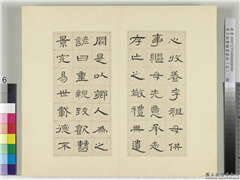 心收養季祖母供
事繼母先意承志
存亡之敬禮無遺
闕是以鄉人為之
諺曰重親致歡曹
景完易世載德不
6